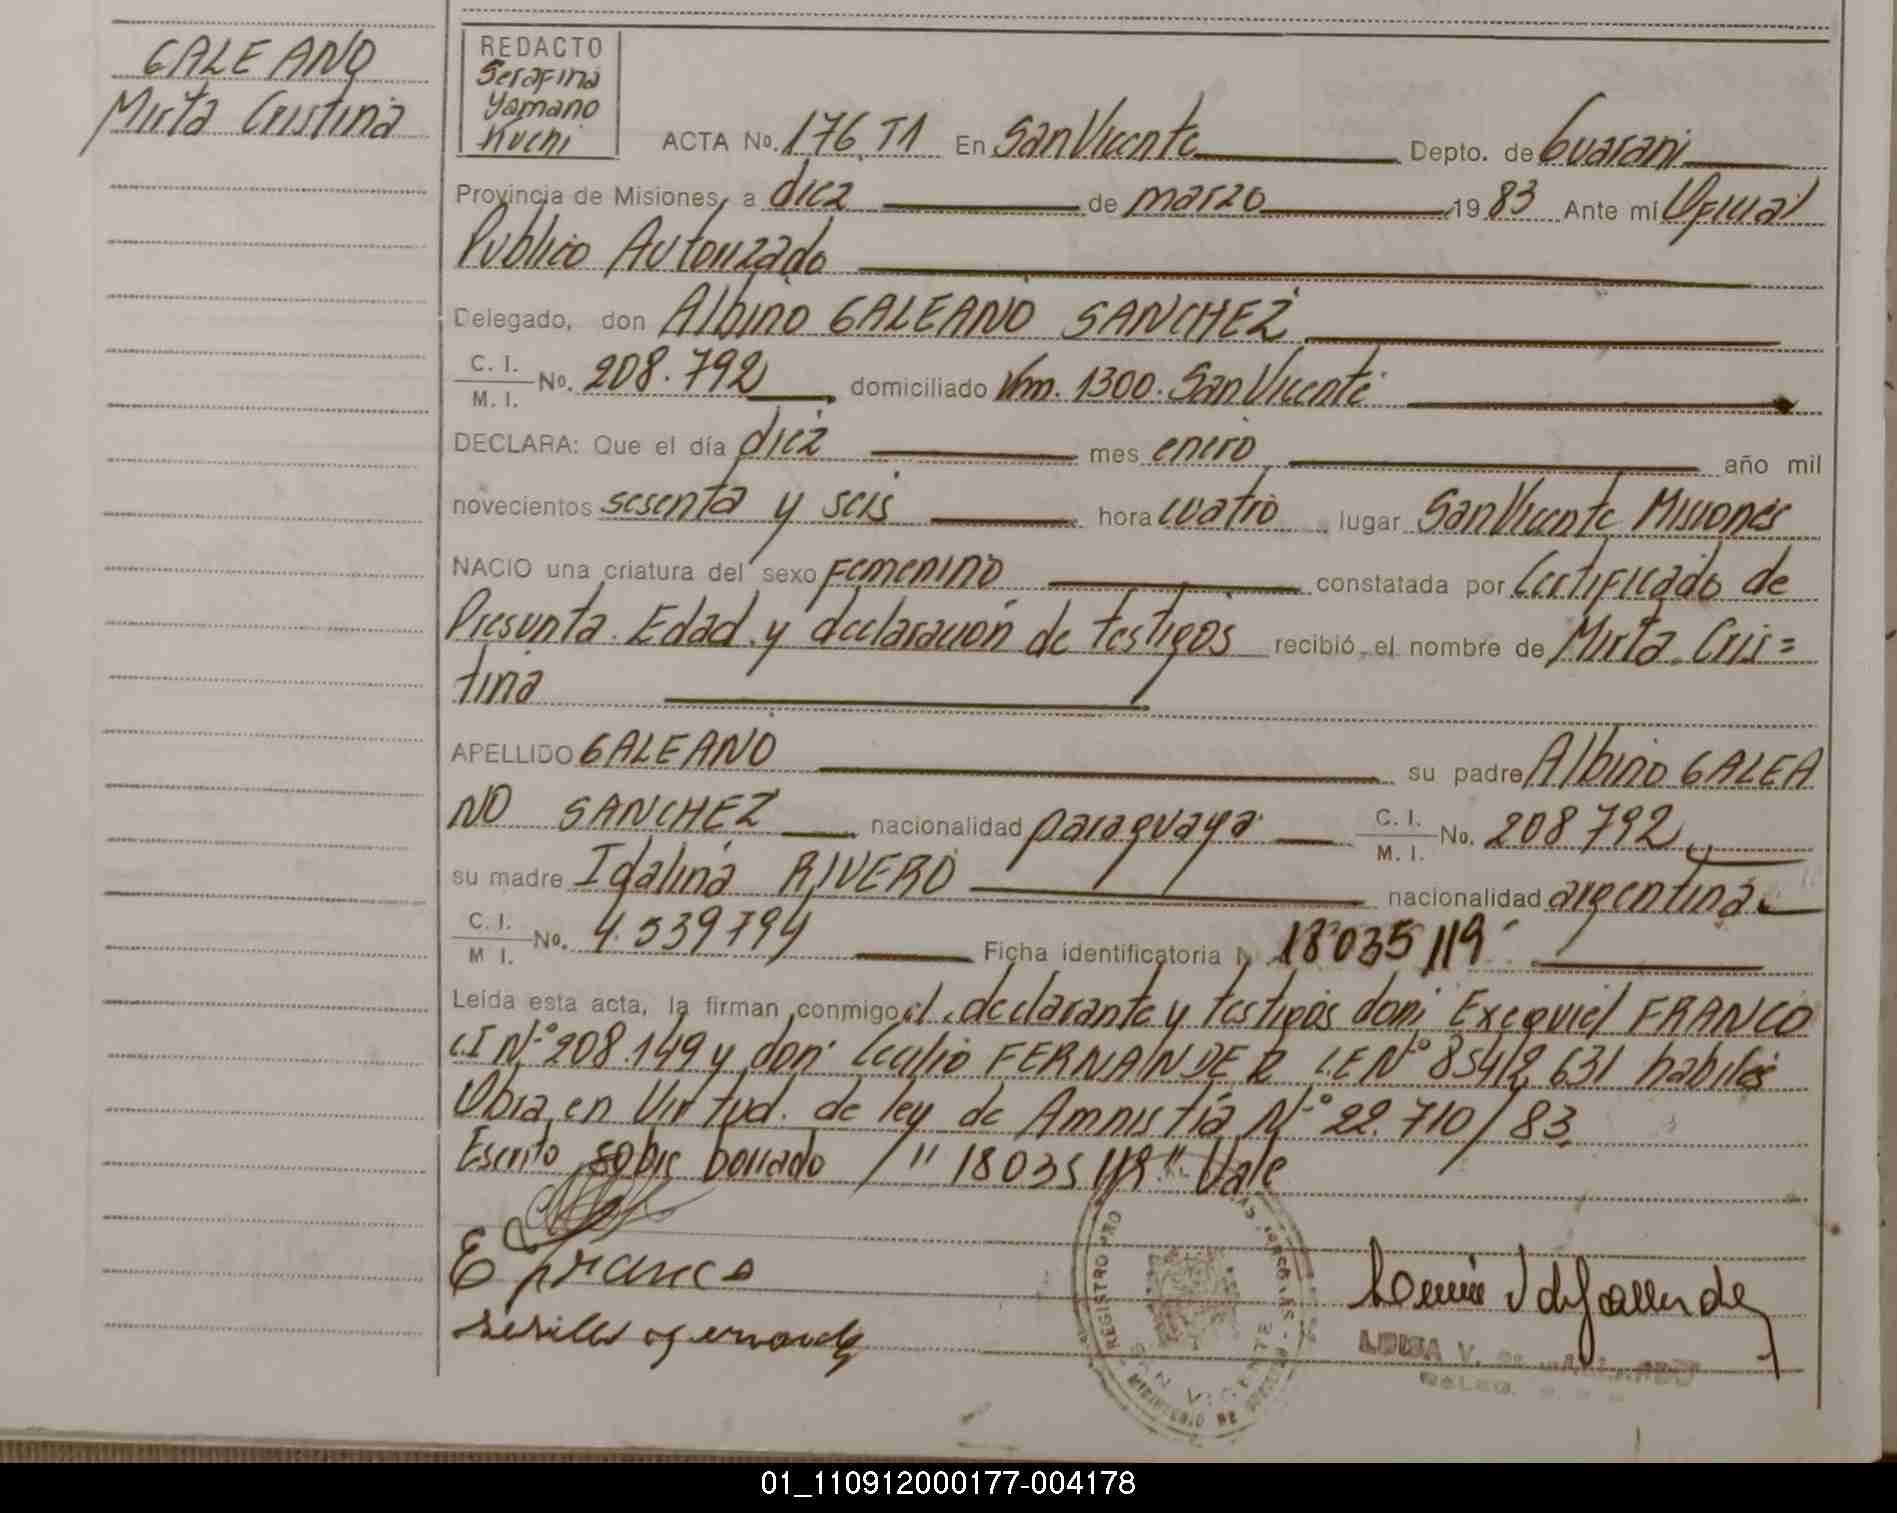 GALEANO
Mirta Cristina
REDACTO
Serafina
Yamano
Kuchi
ACTA No. 176 T1 En San Vicente Depto. de Guarani
Provincia de Misiones, a diez de marzo 1983 Ante mi Oficial
Publico Autorizado
Delegado, don Albino GALEANO SANCHEZ
C. I.
M. I. No. 208.792 domiciliado Km. 1300. San Vicente
DECLARA: Que el día diez mes enero año mil
novecientos sesenta y seis hora cuatro lugar San Vicente Misiones
NACIO una criatura del sexo Femenino constatada por Certificado de
Presunta Edad y declaración de testigos recibió el nombre de Mirta Cris=
tina
APELLIDO GALEANO su padre Albino GALEA
NO SANCHEZ nacionalidad paraguaya C. I.
M. I. No. 208 792
su madre Idalina RIVERO nacionalidad argentina
C. I.
M I. No. 4.539794 Ficha identificatoria N 18035119
Leída esta acta, la firman conmigo el declarante y testigos don: Exequiel FRANCO
C.I Nº 208.149 y don: Cecilio FERNANDER L.E Nº 8542631 habiles
Obra en Virtud de ley de Amnistía Nº 22.710/83.
Escrito sobre borrado /" 18035119" Vale
E franco
REGISTRO PRO
SAN VICENTE
LUISA V. DE
DELEG.
01_110912000177-004178